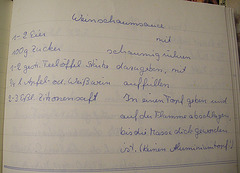 Weinschaumsauce
1-2 Eier mit
100g Zucker schaumig rühren
1-2 gestr. Teelöffel Stärke dazugeben, mit
¼ l Apfel- od. Weißwein auffüllen
2-3 Eßl. Zitronensaft In einen Topf geben und
auf der Flamme abschlagen
bis die Masse dick geworden
ist. (Keinen Aluminiumtopf!)